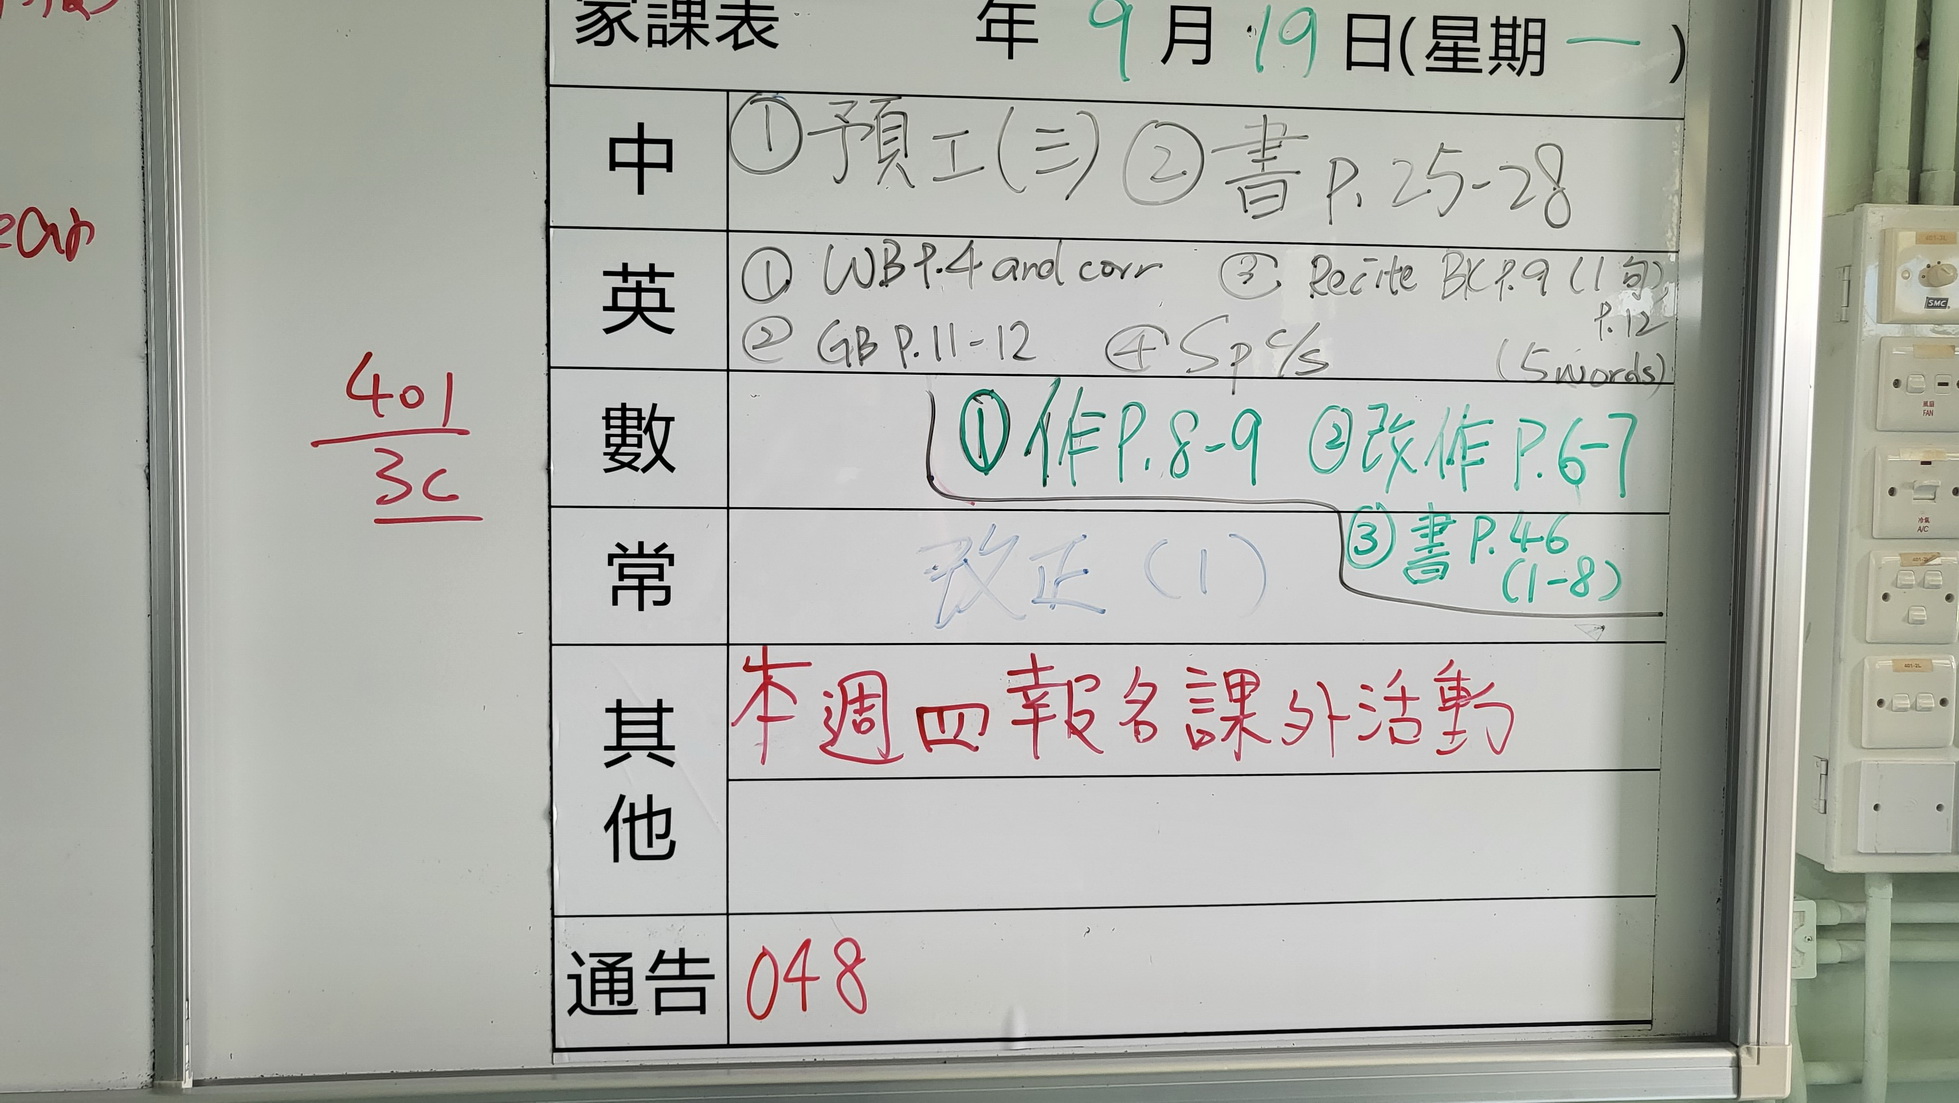 家課表 年 9 月 19 日(星期一)
中 ①預工(三) ②書 P. 25-28
英 ① WB P.4 and corr ③ Recite BK P.9 (1句)
P.12
② GB P.11-12 ④ Sp c/s (5 words)
數 ①作P.8-9 ②改作 P.6-7
③書 P.46
(1-8)
常 改正(1)
其他 本週四報名課外活動
通告 048
401
3C
風扇
FAN
冷氣
A/C
SMC